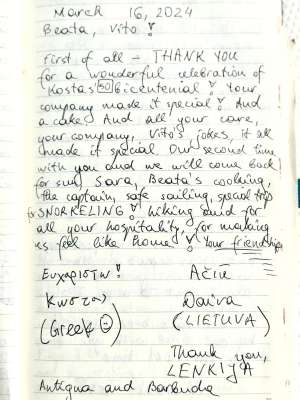 March 16, 2024
Beata, Vito!
First of all – THANK YOU
for a wonderful celebration of
Kostas' 50 Bicentenial! Your
company made it special! And
a cake! And all your care,
your company, Vito's jokes, it all
made it special. Our second time
with you and we will come back
for sure. Sara, Beata's cooking,
the captain, safe sailing, special trip
SNORKELING! hiking and for
all your hospitality, for making
us feel like home! Your friendship
Ευχαριστω! Ačiū
Κωστας Daiva
(Greek ☺) (LIETUVA)
Thank you,
LENKIJA
Antigua and Barbuda